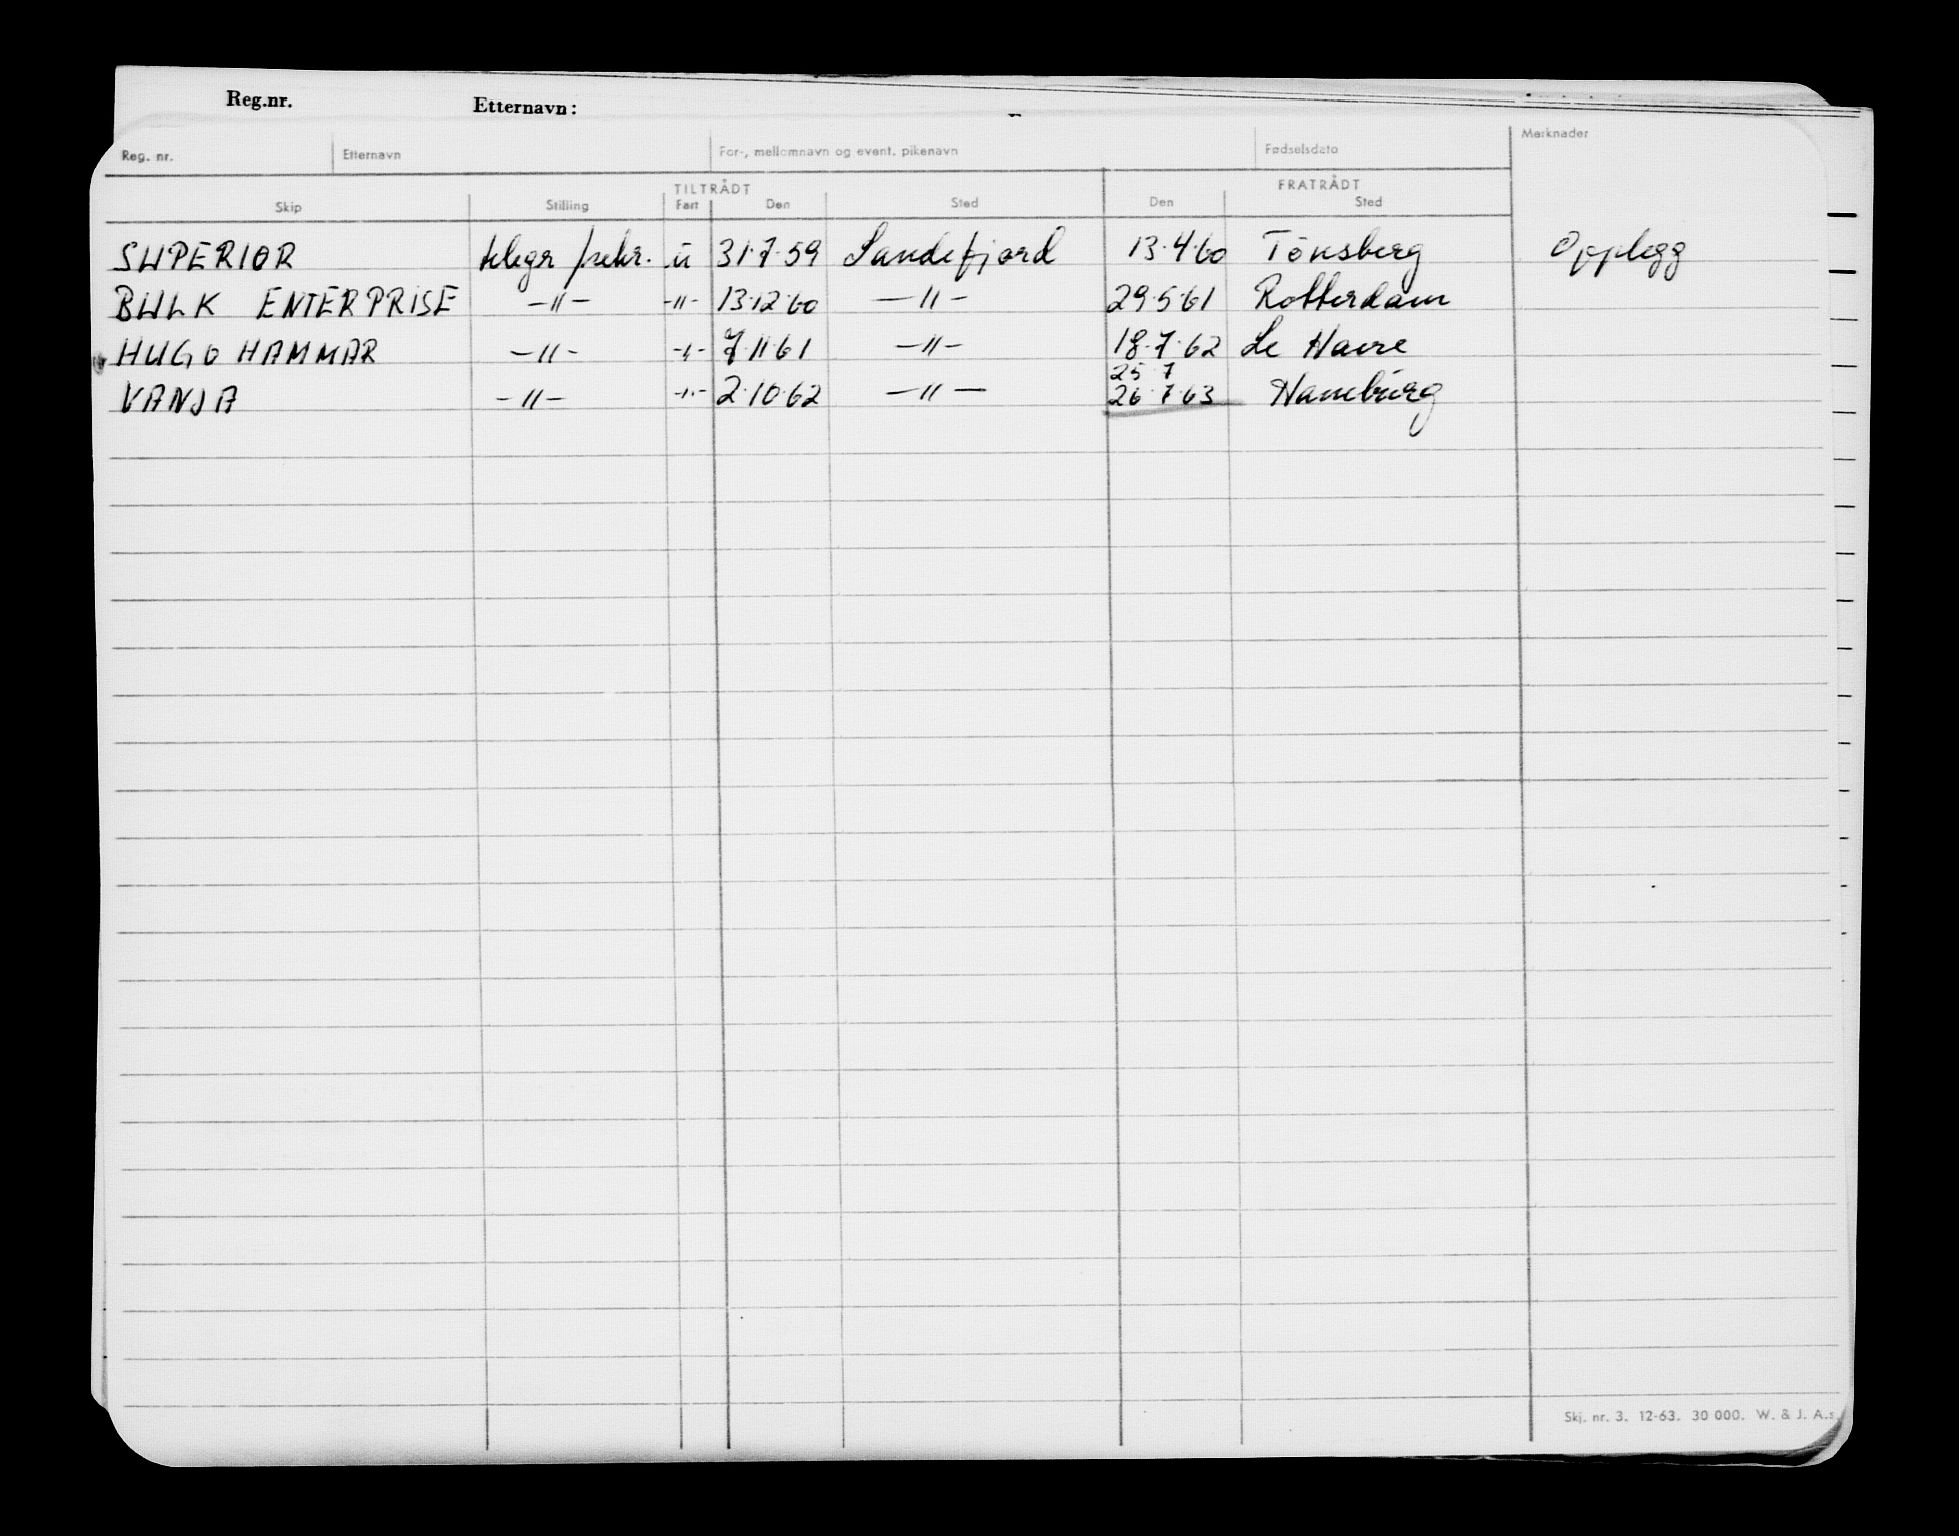 Reg.nr. Etternavn:
Reg. nr. Etternavn For-, mellomnavn og event. pikenavn Fødselsdato Merknader
TILTRÅDT FRATRÅDT
Skip Stilling Fart Den Sted Den Sted
SUPERIOR telegr / sekr. u 31·7·59 Sandefjord 13·4·60 Tönsberg Opplegg
BULK ENTERPRISE -"- -"- 13·12·60 -"- 29·5·61 Rotterdam
HUGO HAMMAR -"- -"- 7·11·61 -"- 18·7·62 Le Havre
25 7
VANJA -"- -"- 2·10·62 -"- 26·7·63 Hamburg
Skj. nr. 3. 12-63. 30 000. W. & J. A.s.